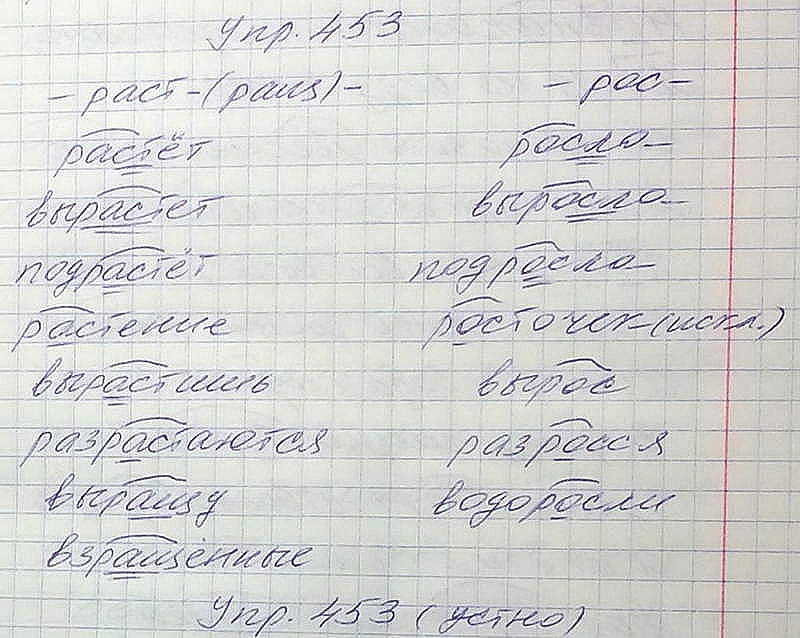 Упр. 453
-раст-(ращ)- -рос-
растёт росла
вырастет выросла
подрастёт подросла
растение росточек (искл.)
вырастишь вырос
разрастаются разросся
выращу водоросли
взращённые
Упр. 453 (устно)